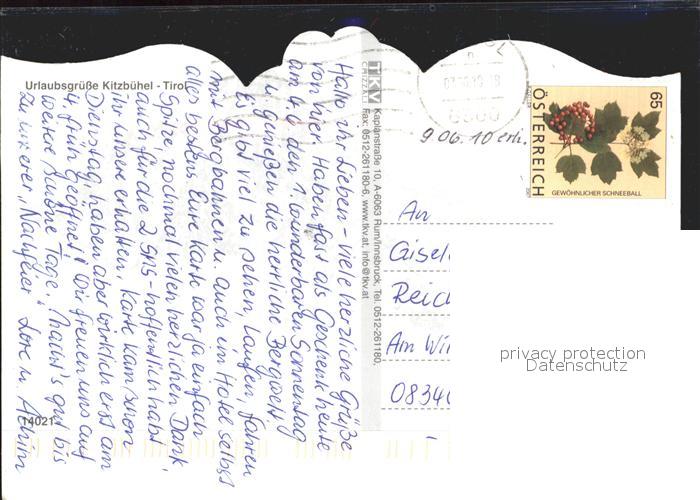 Urlaubsgrüße Kitzbühel - Tirol
Hallo ihr Lieben - viele herzliche Grüße
von hier. Haben fast als Geschenk heute
am 4.6. den 1. wunderbaren Sonnentag
u. genießen die herrliche Bergwelt.
Es gibt viel zu sehen, laufen, fahren
mit Bergbahnen u. auch im Hotel selbst
alles bestens. Eure Karte war ja einfach
Spitze, nochmal vielen herzlichen Dank,
auch für die 2 SMS - hoffentlich habt
ihr unsere erhalten. Karte kam schon
Dienstag, haben aber wirklich erst am
4. früh geöffnet! Wir freuen uns auf
weiter schöne Tage. Macht's gut bis
zu unserer "Nachfeier" Lore u. Achim
14021
TKV
CRIZZAL
Kaplanstraße 10, A-6063 Rum/Innsbruck, Tel. 0512-261180,
Fax: 0512-261180-6, www.tkv.at, info@tkv.at
9.06.10 erh.
65
ÖSTERREICH
GEWÖHNLICHER SCHNEEBALL
An
Gisel
Reic
Am Wi
0834
privacy protection
Datenschutz